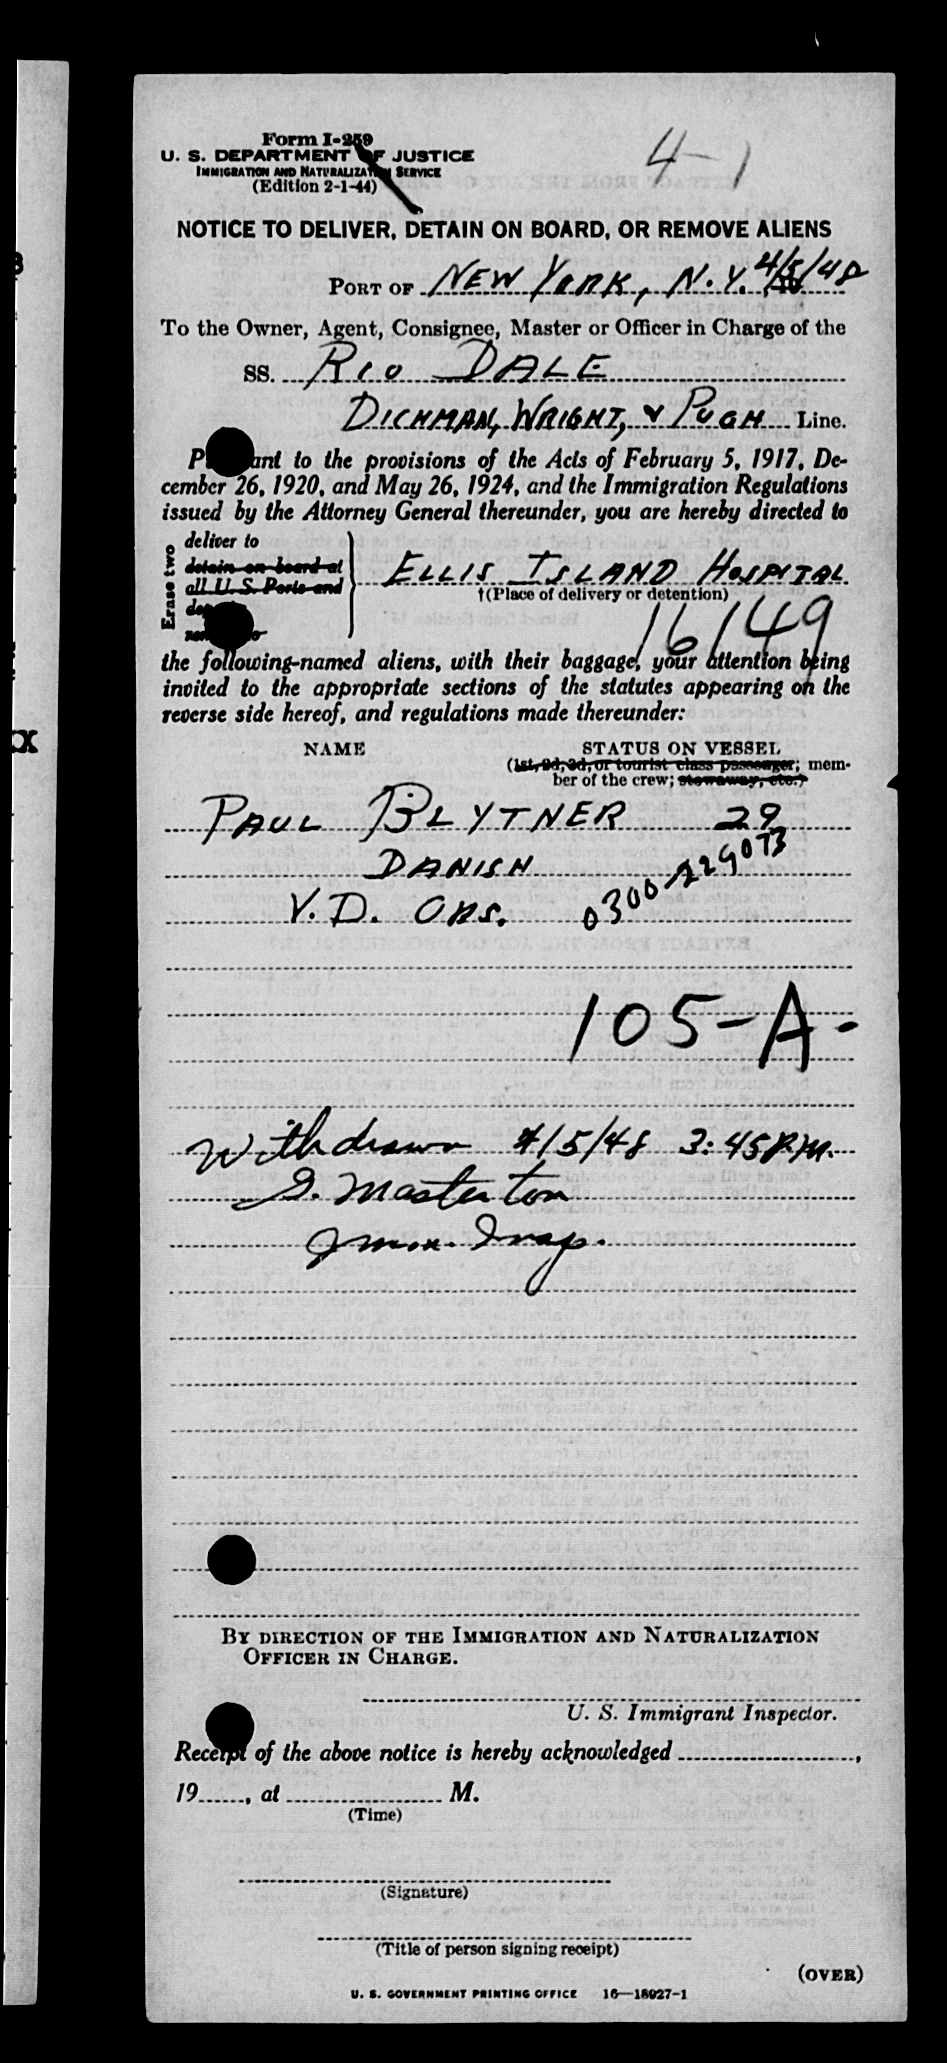 4-1
Form I-259
U. S. DEPARTMENT OF JUSTICE
IMMIGRATION AND NATURALIZATION SERVICE
(Edition 2-1-44)
NOTICE TO DELIVER, DETAIN ON BOARD, OR REMOVE ALIENS
PORT OF NEW YORK, N.Y. 4/5/48
To the Owner, Agent, Consignee, Master or Officer in Charge of the
SS. RIO DALE
DICHMAN, WRIGHT, & PUGH Line.
P ant to the provisions of the Acts of February 5, 1917, De-
cember 26, 1920, and May 26, 1924, and the Immigration Regulations
issued by the Attorney General thereunder, you are hereby directed to
Erase two
deliver to
detain on board at
all U. S. Ports and
ELLIS ISLAND HOSPITAL
†(Place of delivery or detention)
16149
the following-named aliens, with their baggage, your attention being
invited to the appropriate sections of the statutes appearing on the
reverse side hereof, and regulations made thereunder:
NAME STATUS ON VESSEL
(1st, 2d, 3d, or tourist class passenger; mem-
ber of the crew; stowaway, etc.)
PAUL BLYTNER 29
DANISH
V.D. OBS. 0300-229073
105-A-
Withdrawn 4/5/48 3:45 P.M.
G. Masterton
Imm. Insp.
BY DIRECTION OF THE IMMIGRATION AND NATURALIZATION
OFFICER IN CHARGE.
U. S. Immigrant Inspector.
Receipt of the above notice is hereby acknowledged ,
19 , at M.
(Time)
(Signature)
(Title of person signing receipt)
(OVER)
U. S. GOVERNMENT PRINTING OFFICE 16—18927-1